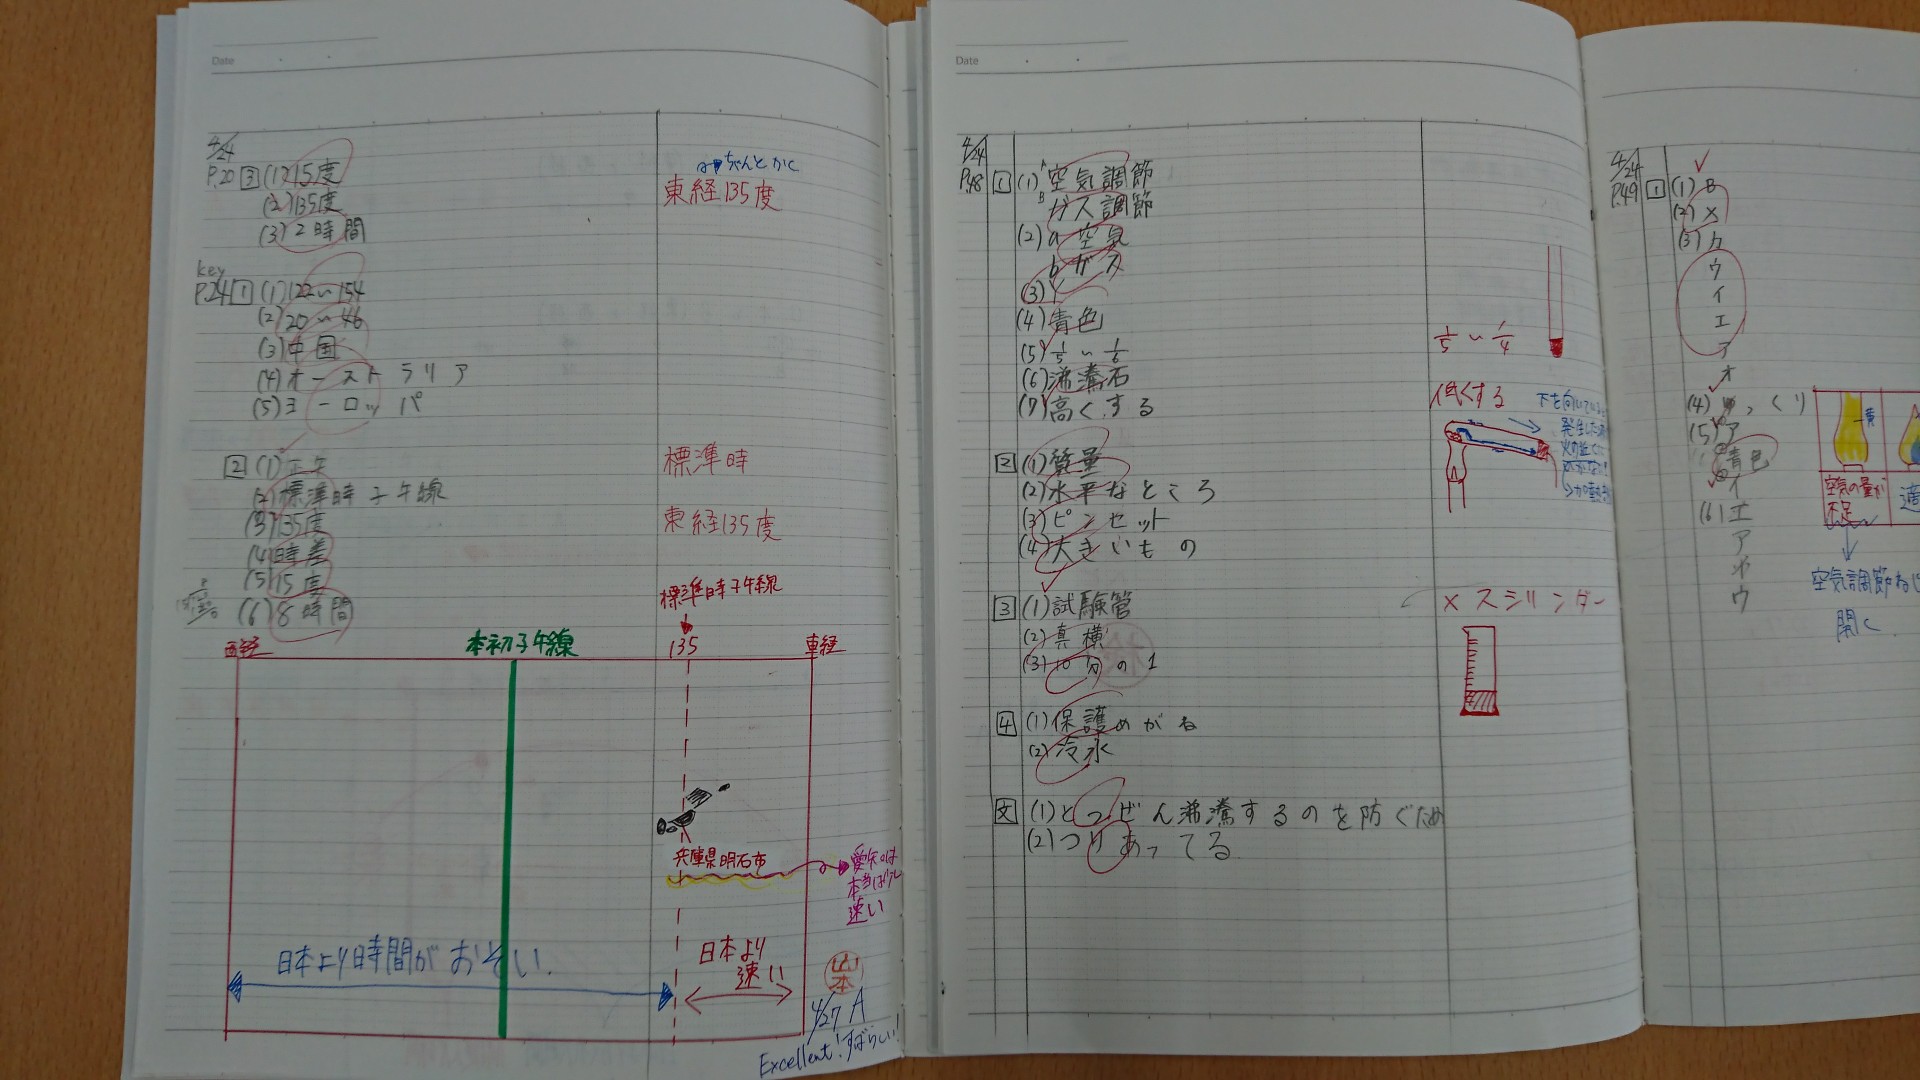 Date
4/24
P.20 3 (1) 15度
(2) 135度
(3) 2時間
ちゃんとかく
東経135度
key
P.24 1 (1) 122〜154
(2) 20〜46
(3) 中国
(4) オーストラリア
(5) ヨーロッパ
2 (1) 正午
(2) 標準時子午線
(3) 135度
(4) 時差
(5) 15度
(6) 8時間
標準時
東経135度
標準時子午線
西経
本初子午線
135
東経
兵庫県明石市
本当は
速い
日本より時間がおそい.
日本より
速い
山本
4/27 A
Excellent! すばらしい!
Date
4/24
P.48 1 (1) A 空気調節
B ガス調節
(2) a 空気
b ガス
(3) Y
(4) 青色
(5) 1/5 〜 1/6
(6) 沸騰石
(7) 高くする
2 (1) 質量
(2) 水平なところ
(3) ピンセット
(4) 大きいもの
3 (1) 試験管
(2) 真横
(3) 10分の1
4 (1) 保護めがね
(2) 冷水
文 (1) とつぜん沸騰するのを防ぐため
(2) つりあってる
1/5 〜 1/4
低くする
メスシリンダー
4/24
P.49 1 (1) B
(2) X
(3) カ
ウ
イ
エ
ア
オ
(4)
(5) ア
青色
イ
(6) エ
ア
イ
ウ
黄
空気の量が
不足
適
空気調節ねじ
開く